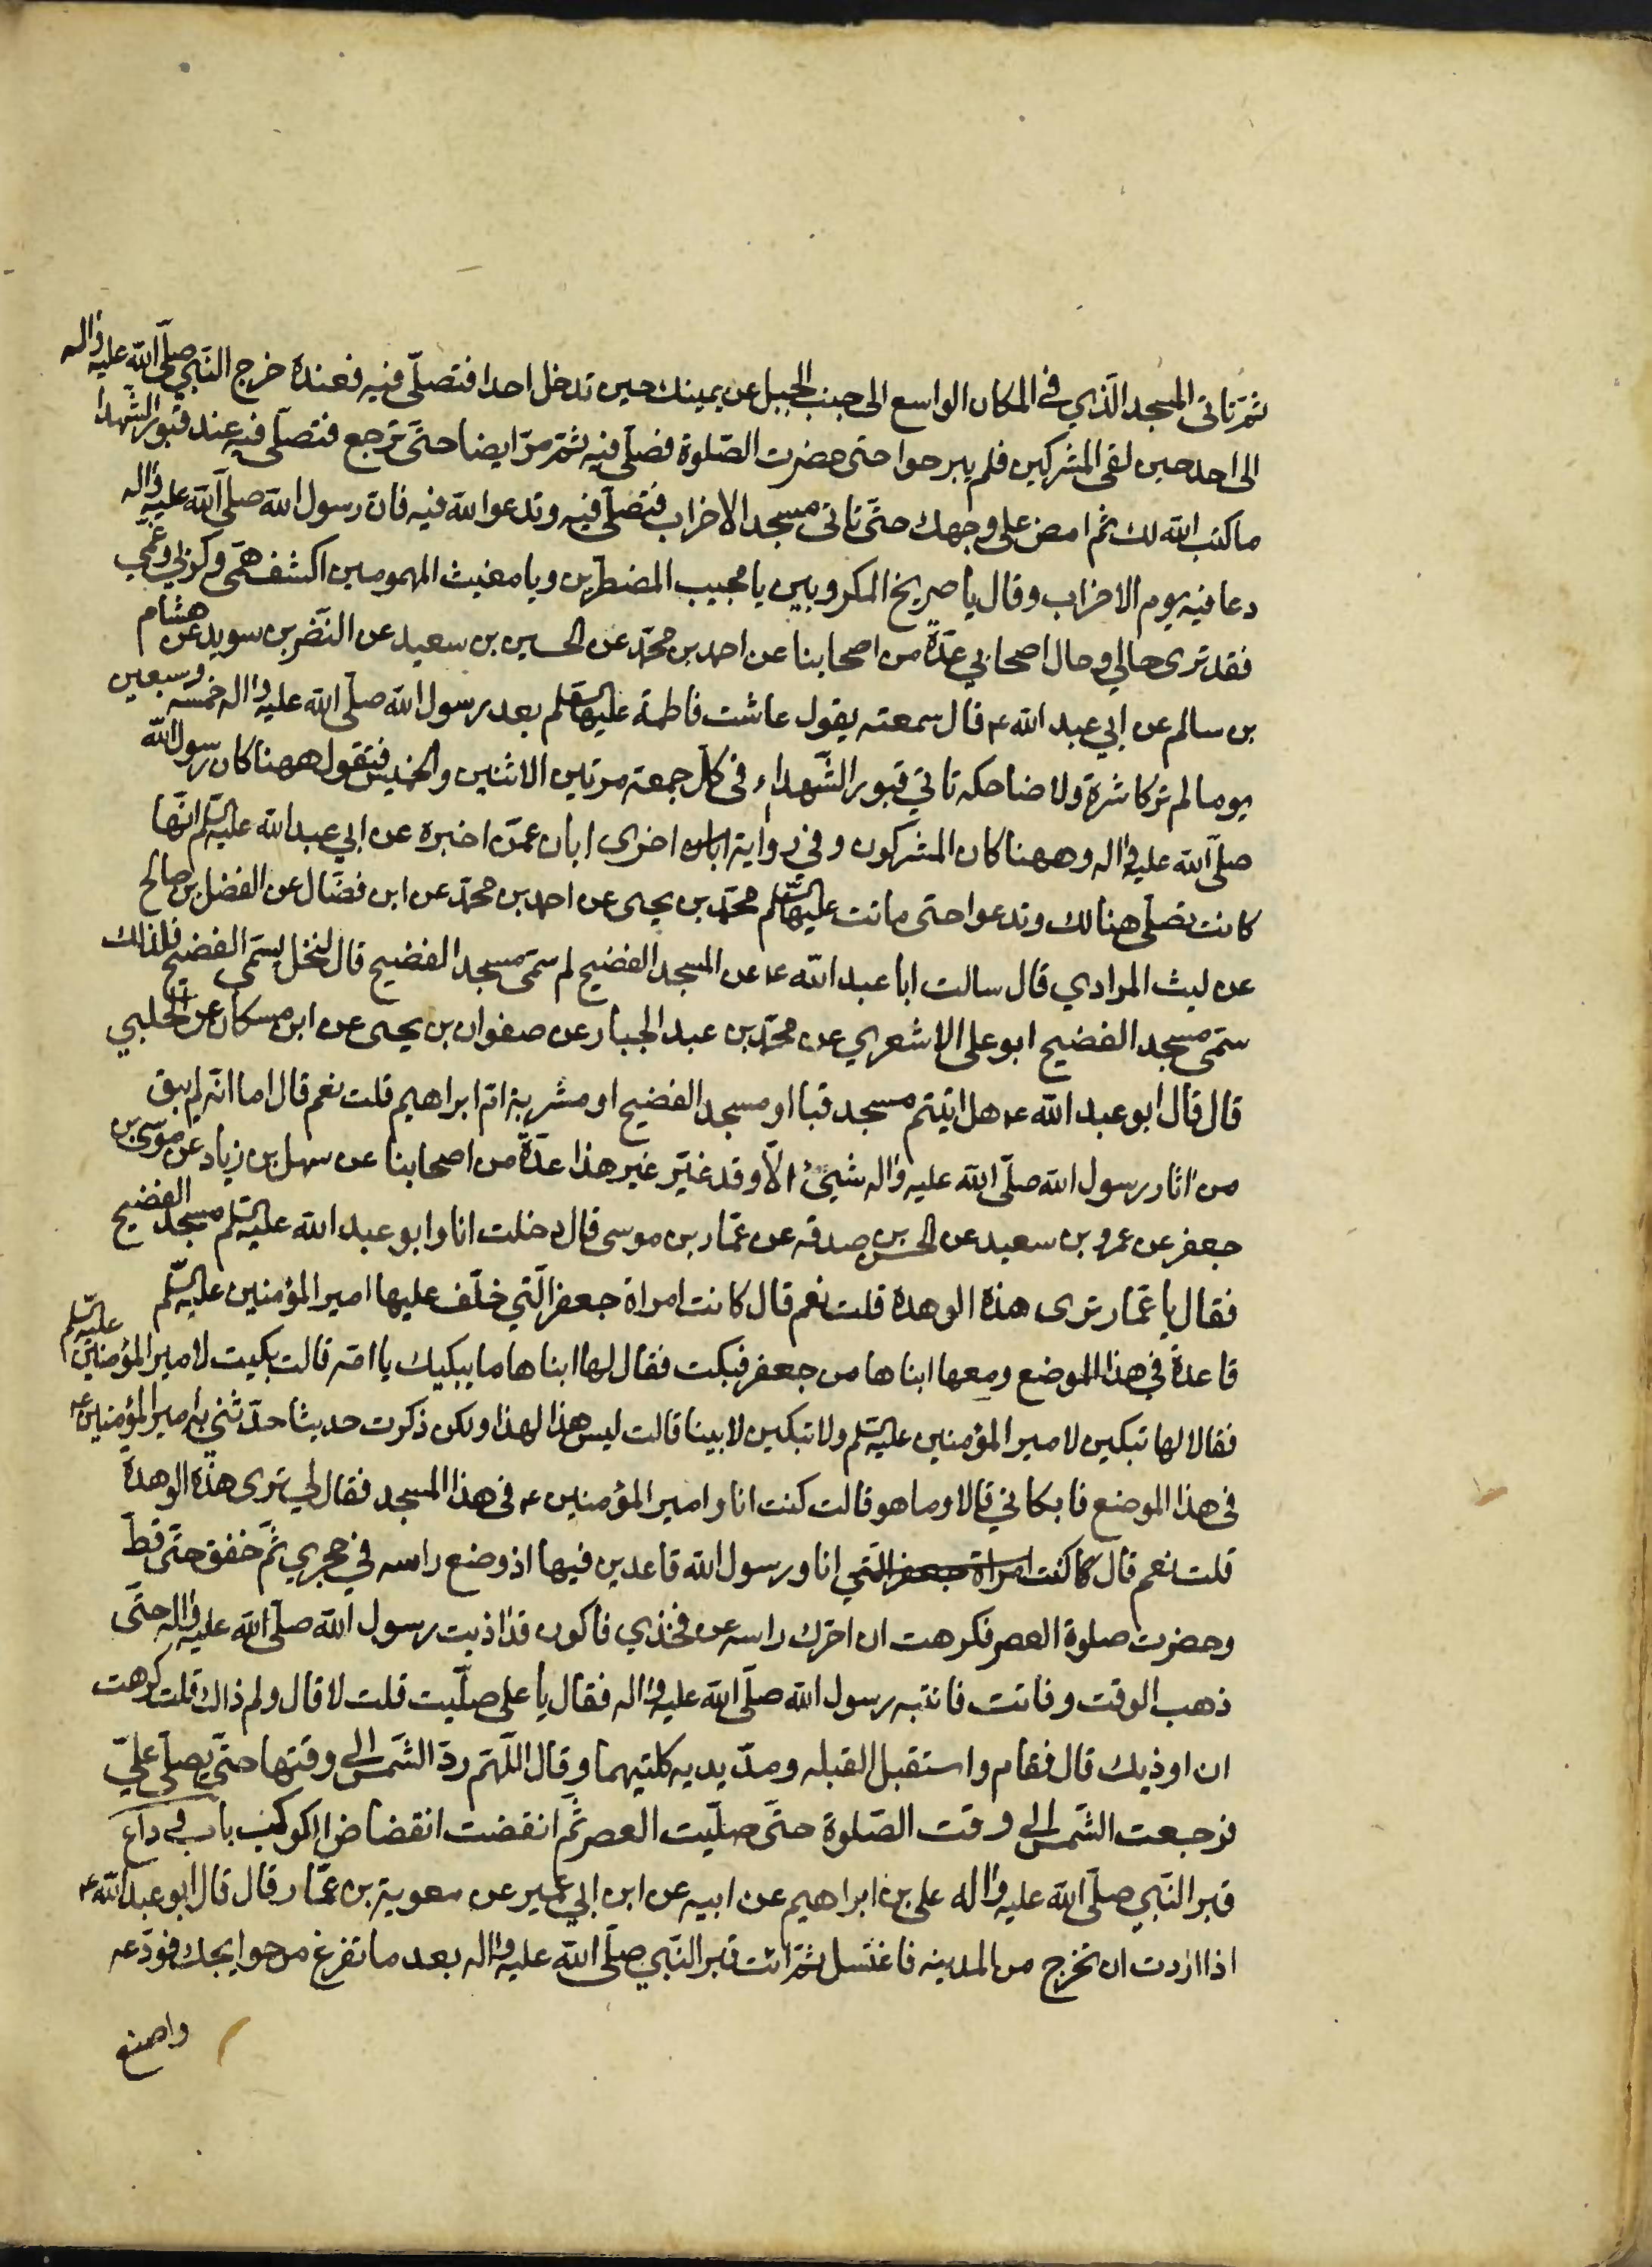 ثمّ تاتی المسجد الّذي في المكان الواسع الى جنب الجبل عن يمينك حين تدخل احدا فتصلّى فيه فعنده خرج النّبي صلّى الله عليه واله
الى احد حين لقى المشركين فلم يبرحوا حتى حضرت الصّلوة فصلّى فيه ثمّ مرّ ايضا حتّى ترجع فتصلّى فيه عند قبور الشّهدا
ما كتب الله لك ثم امض على وجهك حتّى تاتى مسجد الاحزاب فتصلّى فيه وتدعوا الله فيه فان رسول الله صلى الله عليه واله
دعا فيه يوم الاحزاب وقال يا صريخ المكروبين يا مجيب المضطرين ويا مغيث المهمومين اكشف همّى وكربي وغمّي
فقد ترى حالي وحال اصحابي عدّة من اصحابنا عن احمد بن محمّد عن الحسين بن سعيد عن النّضر بن سويد عن هشام
بن سالم عن ابي عبد الله ع قال سمعته يقول عاشت فاطمة عليها السّلم بعد رسول الله صلّى الله عليه واله خمسه وسبعين
يوما لم تر كاشرة ولا ضاحكه تاتي قبور الشّهداء في كلّ جمعة مرتين الاثنين والخميس فتقول ههنا كان رسول الله
صلّى الله عليه واله وههنا كان المشركون وفي رواية ابان اخرى ابان عمّن اخبره عن ابي عبد الله عليه السّلم انّها
كانت تصلّى هنالك وتدعوا حتى ماتت عليها السّلم محمّد بن يحيى عن احمد بن محمّد عن ابن فضّال عن الفضل بن صالح
عن ليث المرادي قال سالت ابا عبد الله ع عن المسجد الفضيح لم سمّى مسجد الفضيح قال لنخل يسمّى الفضيح فلذلك
سمّى مسجد الفضيح ابو على الاشعري عن محمّد بن عبد الجبار عن صفوان بن يحيى عن ابن مسكان عن الحلبي
قال قال ابو عبد الله ع هل اتيتم مسجد قبا او مسجد الفضيح او مشربة امّ ابراهيم قلت نعم قال اما انّه لم يبق
من اثار رسول الله صلّى الله عليه واله شيئ الّا وقد غيّر غير هذا عدّة من اصحابنا عن سهل بن زياد عن موسى بن
جعفر عن عمرو بن سعيد عن الحسن بن صدقه عن عمّار بن موسى قال دخلت انا وابو عبد الله عليه السّلم مسجد الفضيح
فقال يا عمّار ترى هذه الوهدة قلت نعم قال كانت امراة جعفر الّتي خلّف عليها امير المؤمنين عليه السّلم
قاعدة في هذا الموضع ومعها ابناها من جعفر فبكت فقال لها ابناها ما يبكيك يا امّه قالت بكيت لامير المؤمنين عليه السّلم
فقالا لها تبكين لامير المؤمنين عليه السّلم ولا تبكين لابينا قالت ليس هذا لهذا ولكن ذكرت حديثا حدّثني به امير المؤمنين ع
في هذا الموضع فابكاني قالا وما هو قالت كنت انا وامير المؤمنين ع في هذا المسجد فقال لي ترى هذه الوهدة
قلت نعم قال كا كنت امراة جعفر الّتي انا ورسول الله قاعدين فيها اذ وضع راسه في حجري ثمّ خفق حتّى قطّ
وحضرت صلوة العصر فكرهت ان احرّك راسه عن فخذي فاكون قد اذيت رسول الله صلّى الله عليه واله حتّى
ذهب الوقت وفاتت فانتبه رسول الله صلّى الله عليه واله فقال يا على صلّيت قلت لا قال ولم ذالك قلت كرهت
ان اوذيك قال فقام واستقبل القبله ومدّ يديه كلتيهما وقال اللّهمّ ردّ الشّمس الى وقتها حتّى يصلّى عليّ
فرجعت الشّمس الى وقت الصّلوة حتّى صلّيت العصر ثمّ انقضت انقضاض الكوكب باب في وداع
قبر النّبي صلّى الله عليه واله على بن ابراهيم عن ابيه عن ابن ابي عمير عن معوية بن عمّار قال قال ابو عبد الله ع
اذا اردت ان تخرج من المدينه فاغتسل ثمّ ائت قبر النّبي صلّى الله عليه واله بعد ما تفرغ من حوايجك فودّعه
واصنع